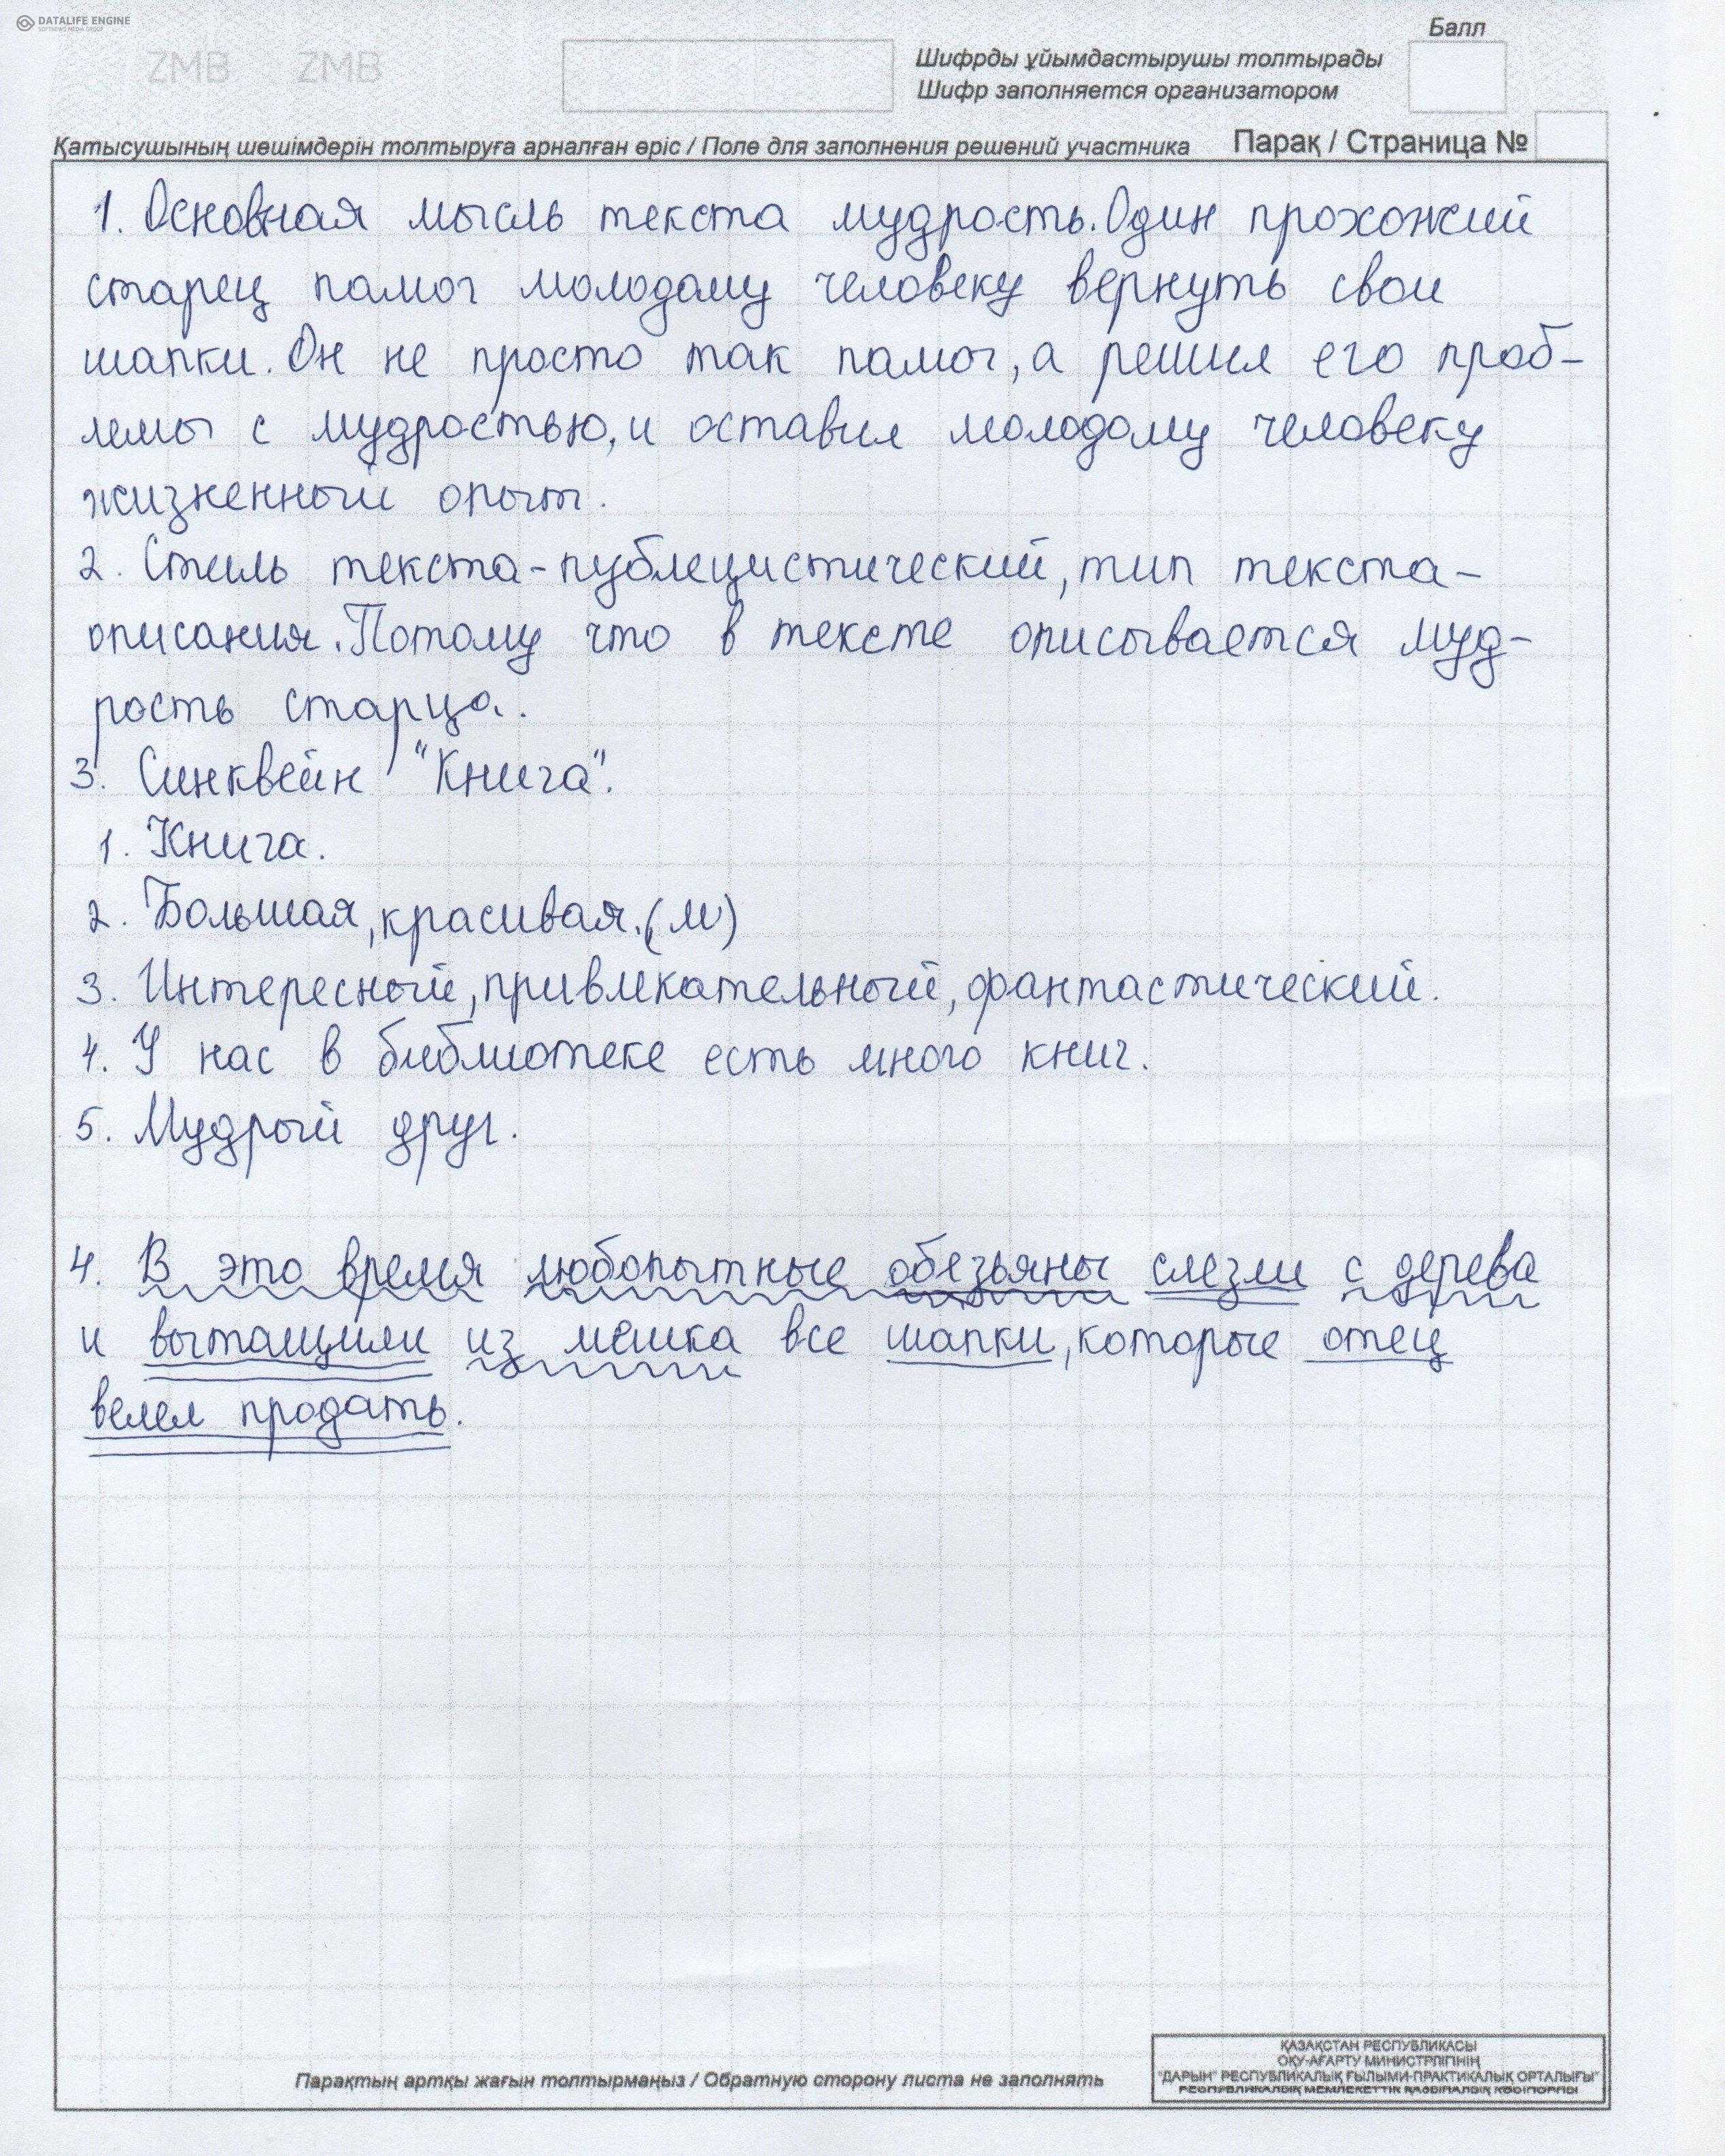 DATALIFE ENGINE
SOFTNEWS MEDIA GROUP
ZMB ZMB
Балл
Шифрды ұйымдастырушы толтырады
Шифр заполняется организатором
Қатысушының шешімдерін толтыруға арналған өріс / Поле для заполнения решений участника Парақ / Страница №
1. Основная мысль текста мудрость. Один прохожий
старец памог молодому человеку вернуть свои
шапки. Он не просто так памог, а решил его проб-
лемы с мудростью, и оставил молодому человеку
жизненный опыт.
2. Стиль текста - публецистический, тип текста -
описания. Потому что в тексте описывается муд-
рость старца.
3. Синквейн "Книга".
1. Книга.
2. Большая, красивая. (м)
3. Интересный, привлекательный, фантастический.
4. У нас в библиотеке есть много книг.
5. Мудрый друг.
4. В это время любопытные обезьяны слезли с дерева
и вытащили из мешка все шапки, которые отец
велел продать.
Парақтың артқы жағын толтырмаңыз / Обратную сторону листа не заполнять
ҚАЗАҚСТАН РЕСПУБЛИКАСЫ
ОҚУ-АҒАРТУ МИНИСТРЛІГІНІҢ
"ДАРЫН" РЕСПУБЛИКАЛЫҚ ҒЫЛЫМИ-ПРАКТИКАЛЫҚ ОРТАЛЫҒЫ"
РЕСПУБЛИКАЛЫҚ МЕМЛЕКЕТТІК ҚАЗЫНАЛЫҚ КӘСІПОРНЫ